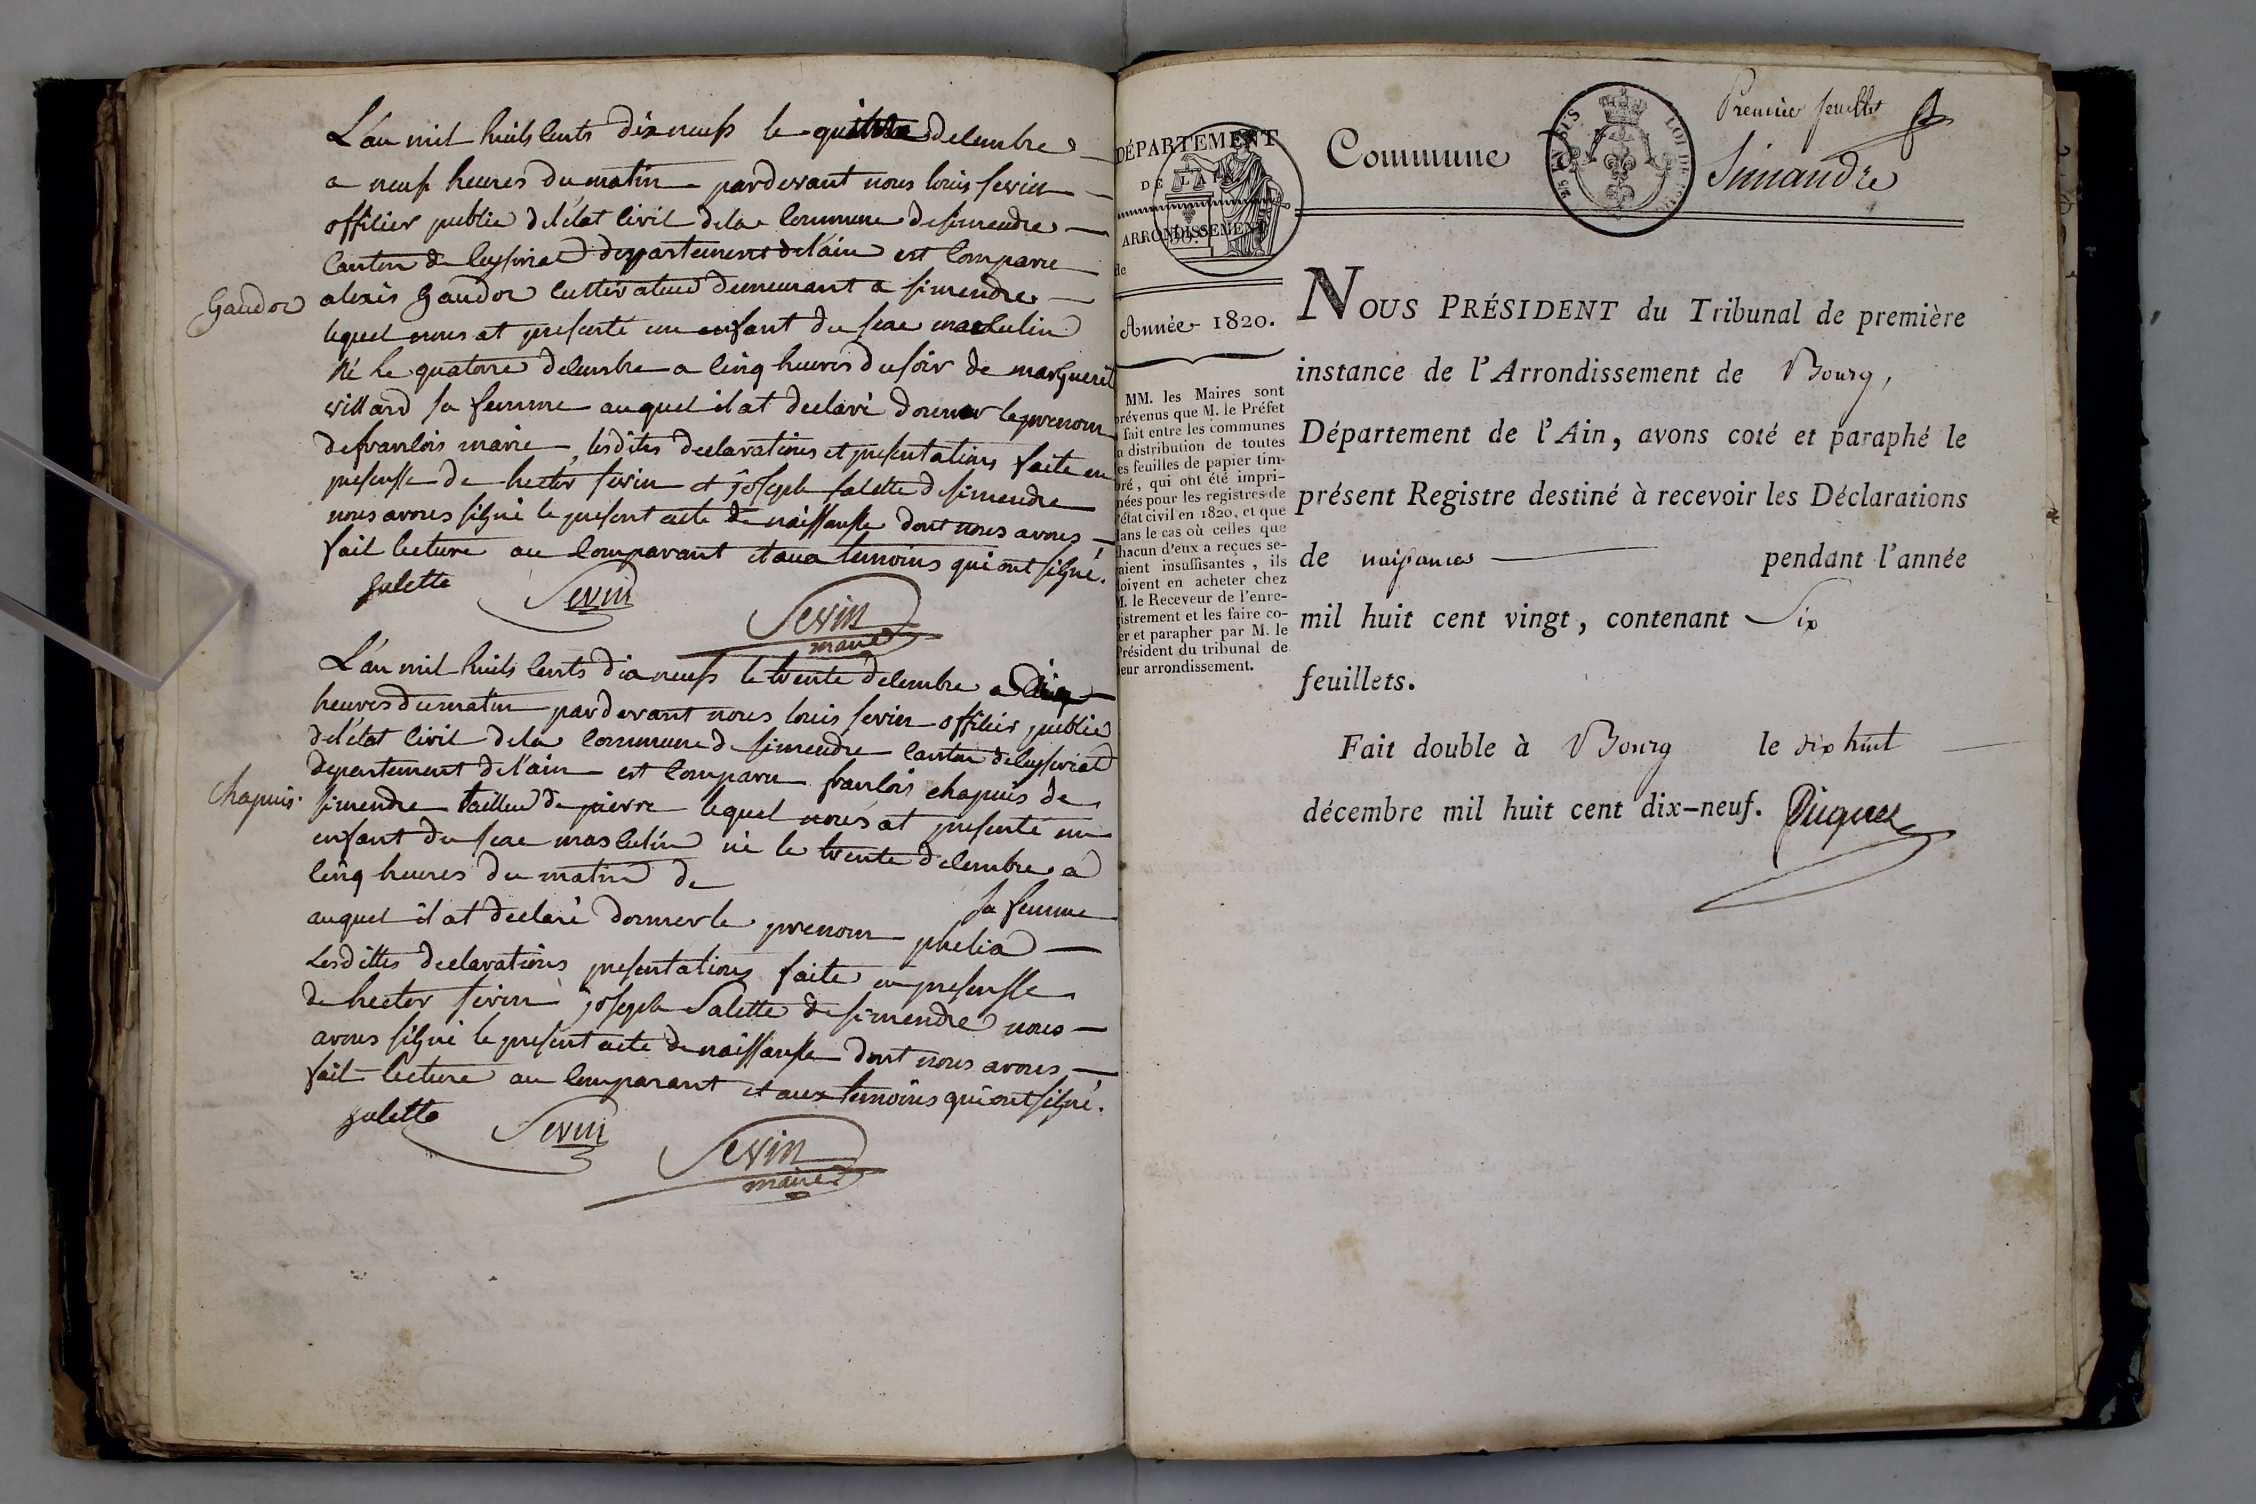 L'an mil huits cents dix neufs le decembre
a neufs heures du matin pardevant nous louis sevin
officier public de l'état civil de la commune de simendre
canton de ceyseriat departement de l'ain est comparu
Gaudoz
alexis Gaudoz cultivateur demeurant a simendre
lequel nous at presenté un enfant du sexe masculin
né le quatorze decembre a cinq heures du soir de marguerit
villard sa femme auquel il at declaré donner le prenom
de francois marie, lesdites declarations et presentations faite en
presensse de hector sevin et joseph salette de simendre
nous avons signé le present acte de naissansse dont nous avons
fait lecture au comparant et aux temoins qui ont signé.
salette Sevin
Sevin
maire
L'an mil huits cents dix neufs le trente decembre a
heures du matin pardevant nous louis sevin officier public
de l'état civil de la commune de simendre canton de ceyseriat
departement de l'ain est comparu francois chapuis de
chapuis.
simendre tailleur de pierre lequel nous at presenté un
enfant du sexe masculin né le trente decembre a
cinq heures du matin de
sa femme
auquel il at declaré donner le prenom phelix
Lesdittes declarations presentations faite en presensse
de hector sevin joseph Salette de simendre nous
avons signé le present acte de naissansse dont nous avons
fait lecture au comparant et aux temoins qui ont signé.
salette Sevin
Sevin
maire
Premier feuillet
DÉPARTEMENT
DE L'AIN
ARRONDISSEMENT
de
Commune D Simandre
25 LOI DE
Année 1820.
MM. les Maires sont
prévenus que M. le Préfet
fait entre les communes
la distribution de toutes
les feuilles de papier tim-
bré, qui ont été impri-
mées pour les registres de
l'état civil en 1820, et que
dans le cas où celles que
chacun d'eux a reçues se-
raient insuffisantes, ils
doivent en acheter chez
M. le Receveur de l'enre-
gistrement et les faire co-
ter et parapher par M. le
Président du tribunal de
leur arrondissement.
NOUS PRÉSIDENT du Tribunal de première
instance de l'Arrondissement de Bourg,
Département de l'Ain, avons coté et paraphé le
présent Registre destiné à recevoir les Déclarations
de naissances pendant l'année
mil huit cent vingt, contenant Six
feuillets.
Fait double à Bourg le dix huit
décembre mil huit cent dix-neuf.